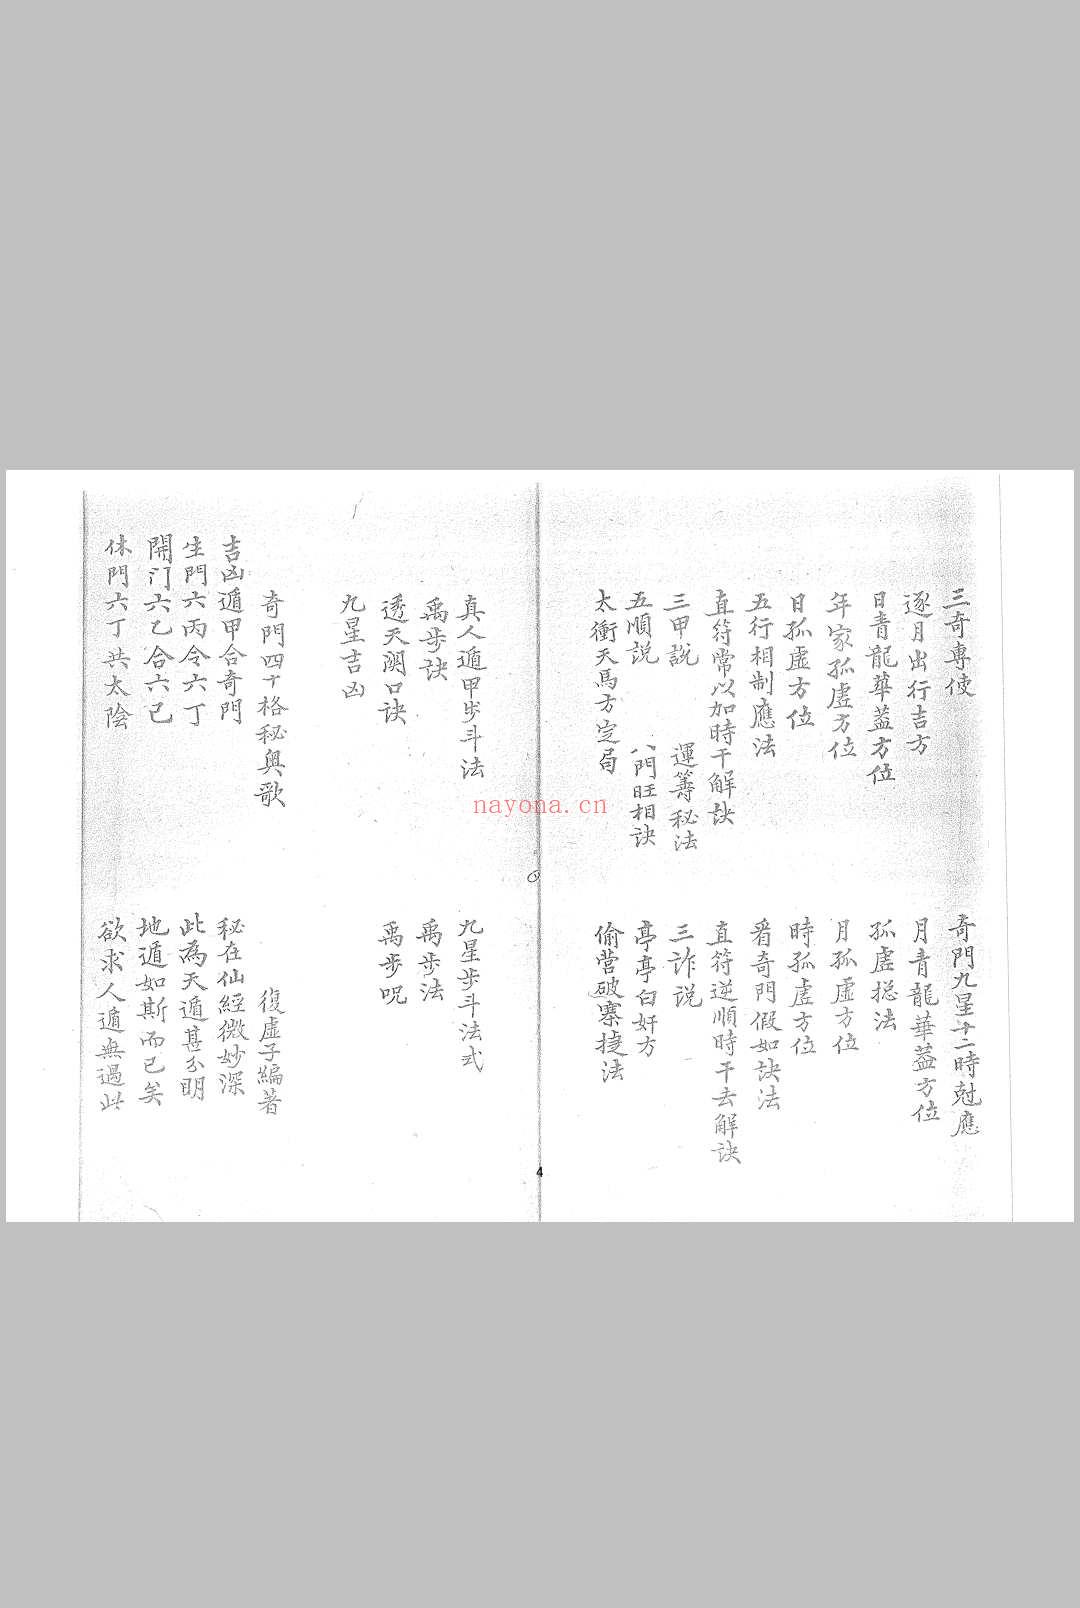 三奇專使
奇門九星十二時尅應
逐月出行吉方
月青龍華蓋方位
日青龍華蓋方位
孤虛捴法
年家孤虛方位
月孤虛方位
日孤虛方位
時孤虛方位
五行相制應法
看奇門假如訣法
直符常以加時干解訣
直符逆順時干去解訣
三甲說
運籌秘法
三詐说
五順説
八門旺相訣
亭亭白奸方
太衝天馬方定局
偷营破寨捷法
真人遁甲步斗法
九星步斗法式
禹步訣
禹步法
透天關口诀
禹步呪
九星吉凶
奇門四十格秘奥歌
復虛子編著
吉凶遁甲合奇門
秘在仙經微妙深
生門六丙令六丁
此為天遁甚分明
開门六乙合六己
地遁如斯而已矣
休門六丁共太陰
欲求人遁無過此
nayona.cn
4